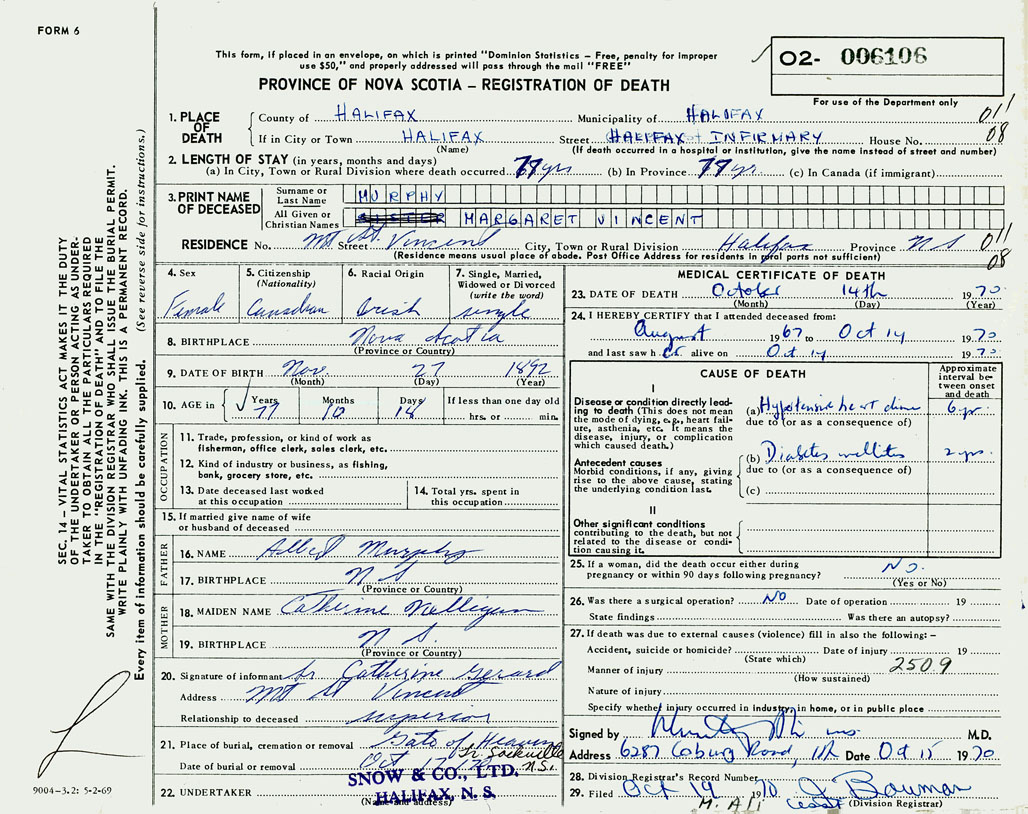 FORM 6
This form, if placed in an envelope, on which is printed "Dominion Statistics – Free, penalty for improper
use $50," and properly addressed will pass through the mail "FREE"
O2- 006106
For use of the Department only
PROVINCE OF NOVA SCOTIA – REGISTRATION OF DEATH
1. PLACE OF DEATH
County of HALIFAX Municipality of HALIFAX 011
If in City or Town HALIFAX Street HALIFAX INFIRMARY House No. 08
(Name) (If death occurred in a hospital or institution, give the name instead of street and number)
2. LENGTH OF STAY (in years, months and days)
(a) In City, Town or Rural Division where death occurred 77 yrs (b) In Province 77 yr. (c) In Canada (if immigrant)
3. PRINT NAME OF DECEASED
Surname or Last Name MURPHY
All Given or Christian Names SISTER MARGARET VINCENT
RESIDENCE No. Mt St. Vincent Street City, Town or Rural Division Halifax Province N S 011
(Residence means usual place of abode. Post Office Address for residents in rural parts not sufficient) 08
4. Sex
Female
5. Citizenship
(Nationality)
Canadian
6. Racial Origin
Irish
7. Single, Married,
Widowed or Divorced
(write the word)
single
8. BIRTHPLACE Nova Scotia
(Province or Country)
9. DATE OF BIRTH Nov. 27 1892
(Month) (Day) (Year)
10. AGE in Years Months Days If less than one day old
77 10 18 hrs. or min.
OCCUPATION
11. Trade, profession, or kind of work as
fisherman, office clerk, sales clerk, etc.
12. Kind of industry or business, as fishing,
bank, grocery store, etc.
13. Date deceased last worked
at this occupation
14. Total yrs. spent in
this occupation
15. If married give name of wife
or husband of deceased
FATHER
16. NAME Albert Murphy
17. BIRTHPLACE N S
(Province or Country)
MOTHER
18. MAIDEN NAME Catherine Mulligan
19. BIRTHPLACE N S.
(Province or Country)
20. Signature of informant Sr Catherine Gerard
Address Mt St Vincent
Relationship to deceased superior
21. Place of burial, cremation or removal Gate of Heaven
Lr. Sackville
Date of burial or removal Oct 17 N.S.
22. UNDERTAKER
SNOW & CO., LTD.
HALIFAX, N. S.
(Name and address)
MEDICAL CERTIFICATE OF DEATH
23. DATE OF DEATH October 14th 1970
(Month) (Day) (Year)
24. I HEREBY CERTIFY that I attended deceased from:
August 1967 to Oct 14 1970
and last saw her alive on Oct. 14 1970
CAUSE OF DEATH
Approximate
interval be-
tween onset
and death
I
Disease or condition directly lead-
ing to death (This does not mean
the mode of dying, e.g., heart fail-
ure, asthenia, etc. It means the
disease, injury, or complication
which caused death.)
(a) Hypotensive heart 6 yr.
due to (or as a consequence of)
Antecedent causes
Morbid conditions, if any, giving
rise to the above cause, stating
the underlying condition last.
(b) Diabetes mellitus 2 yrs.
due to (or as a consequence of)
(c)
II
Other significant conditions
contributing to the death, but not
related to the disease or condi-
tion causing it.
25. If a woman, did the death occur either during
pregnancy or within 90 days following pregnancy? No.
(Yes or No)
26. Was there a surgical operation? NO Date of operation 19
State findings Was there an autopsy?
27. If death was due to external causes (violence) fill in also the following: –
Accident, suicide or homicide? Date of injury 19
(State which)
Manner of injury 2509
(How sustained)
Nature of injury
Specify whether injury occurred in industry, in home, or in public place
Signed by M.D.
Address 6287 Coburg Road, Date Oct 15 1970
28. Division Registrar's Record Number
29. Filed Oct 19 1970 J Bowman
M. Ali (Division Registrar)
SEC. 14 – VITAL STATISTICS ACT MAKES IT THE DUTY
OF THE UNDERTAKER OR PERSON ACTING AS UNDER-
TAKER TO OBTAIN ALL THE PARTICULARS REQUIRED
IN THE "REGISTRATION OF DEATH" AND TO FILE THE
SAME WITH THE DIVISION REGISTRAR WHO SHALL ISSUE THE BURIAL PERMIT.
WRITE PLAINLY WITH UNFADING INK. THIS IS A PERMANENT RECORD.
Every item of information should be carefully supplied. (See reverse side for instructions.)
9004-3.2: 5-2-69